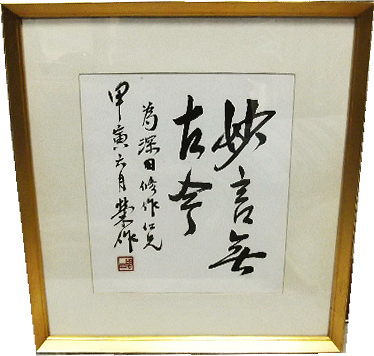 妙言無
古今
為深田修作仁兄
甲寅六月榮作